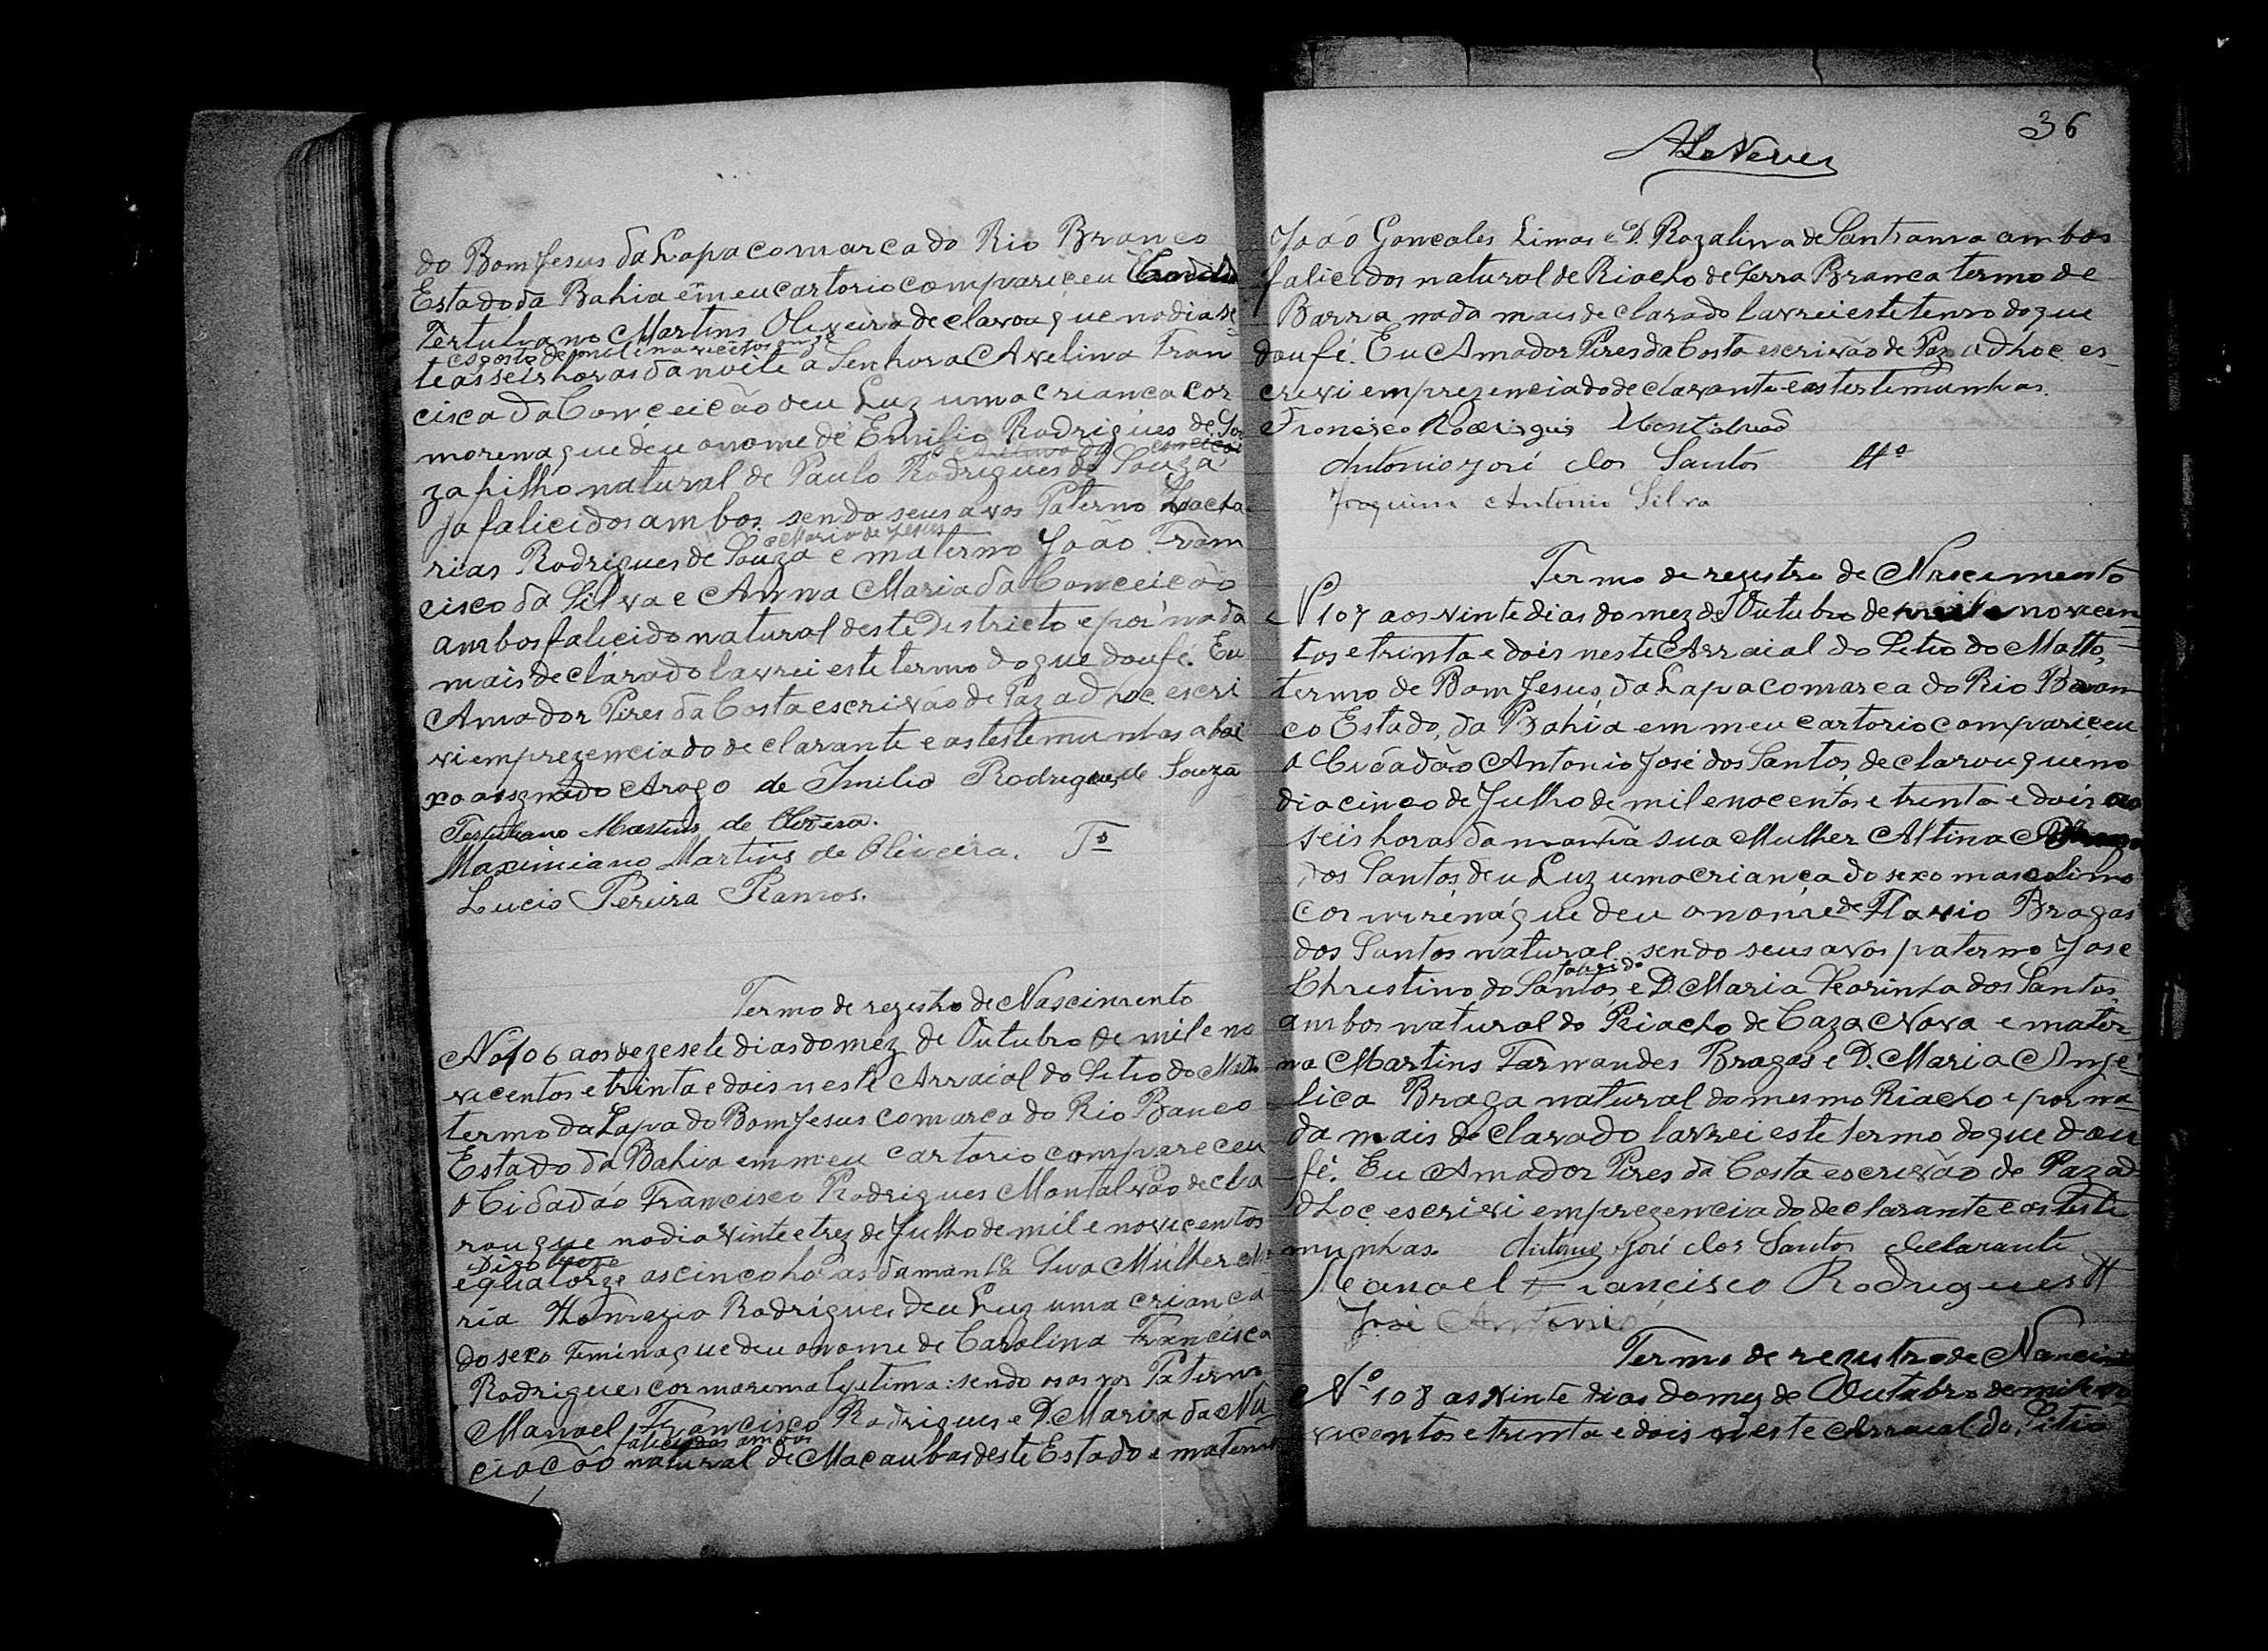 do Bom Jesus da Lapa comarca do Rio Branco
Estado da Bahia em meu cartorio compariçeu
Tertuliano Martins Oliveira declarou que no dia se
agosto de mil e novicentos onze
te as seis horas da noite a Senhora Avelina Fran
cisca da Conçeicão deu Luz uma criança cor
morena que deu o nome de Emilio Rodrigues de Sou
za filho natural de Paulo Rodrigues de Souza
ja falicidos ambos sendo seus avos Paterno Zacha
e Maria de Jesus
rias Rodrigues de Souza e materno João Fran
cisco da Silva e Anna Maria da Conceicão
ambos falicido natural deste Destricto e por nada
mais declarado lavrei este termo do que dou fé. Eu
Amador Pires da Costa escrivão de Paz ad hoc escri
vi em prezencia do declarante e as testemunhas abai
xo assgnado Arogo de Imilio Rodrigues de Souza
Tertuliano Martins de Olivera.
Maximiano Martins de Oliveira. Tª
Lucio Pereira Ramos.
Termo de registro de Nascimento
Nº 106 aos dezesete dias do mez de Outubro de mil e no
vecentos e trinta e dois neste Arraial do Sitio do Matto
termo da Lapa do Bom Jesus comarca do Rio Banco
Estado da Bahia em meu cartorio compareceu
o Cidadão Francisco Rodrigues Montalvão decla
rou que no dia vinte e trez de Julho de mil e novicentos
Digo
e quatorze as cinco horas da manhã Sua Mulher Ma
ria Rodrigues deu Luz uma criança
do sexo Femina que deu o nome de Carolina Francisca
Rodrigues cor morena legitima: sendo os avos Paterno
Manoel Francisco Rodrigues e D. Maria da Nu
falicidos ambos
ciacão natural de Macaubas deste Estado e materno
36
ALNeves
João Goncales Limas e D. Rozalina de Santanna ambos
falicidos natural de Riacho de Serra Branca termo de
Barra nada mais declarado lavrei este termo do que
dou fé. Eu Amador Pires da Costa escrivão de Paz ad hoc es
crevi em prezencia do declarante e as testemunhas.
Francisco Rodrigues Montalvão
Antonio José dos Santos
Joaquim Antonio Silva
Termo de registro de Nascimento
Nº 107 aos vinte dias do mez de Outubro de mil e novecen
tos e trinta e dois neste Arraial do Sitio do Matto,
termo de Bom Jesus da Lapa comarca do Rio Bran
co Estado da Bahia em meu cartorio compariçeu
o Cidadão Antonio José dos Santos, declarou que no
dia cinco de Julho de mil e nocentos e trinta e dois as
seis horas da manhã sua Mulher Altina
dos Santos deu Luz uma criança do sexo mascolino
cor murena que deu o nome de Flavio Bragas
dos Santos natural sendo seus avos paterno José
falicido
Christino do Santos e D. Maria dos Santos
ambos natural do Riacho de Caza Nova e mater
na Martins Farnandes Bragas e D. Maria Anje
lica Braga natural do mesmo Riacho e por na
da mais declarado lavrei este termo do que dou
fé. Eu Amador Pires da Costa escrivão de Paz ad
Hoc escrivi em prezencia do declarante e as teste
munhas. Antonio José dos Santos declarante
Manoel Francisco Rodrigues
José Antonio
Termo de registro de Nasci
Nº 108 as vinte dias do mez de Outubro de mil e no
vecentos e trinta e dois neste Arraial do Sitio